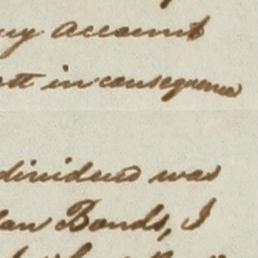 my account
in consequence
dividend was
Bonds, I